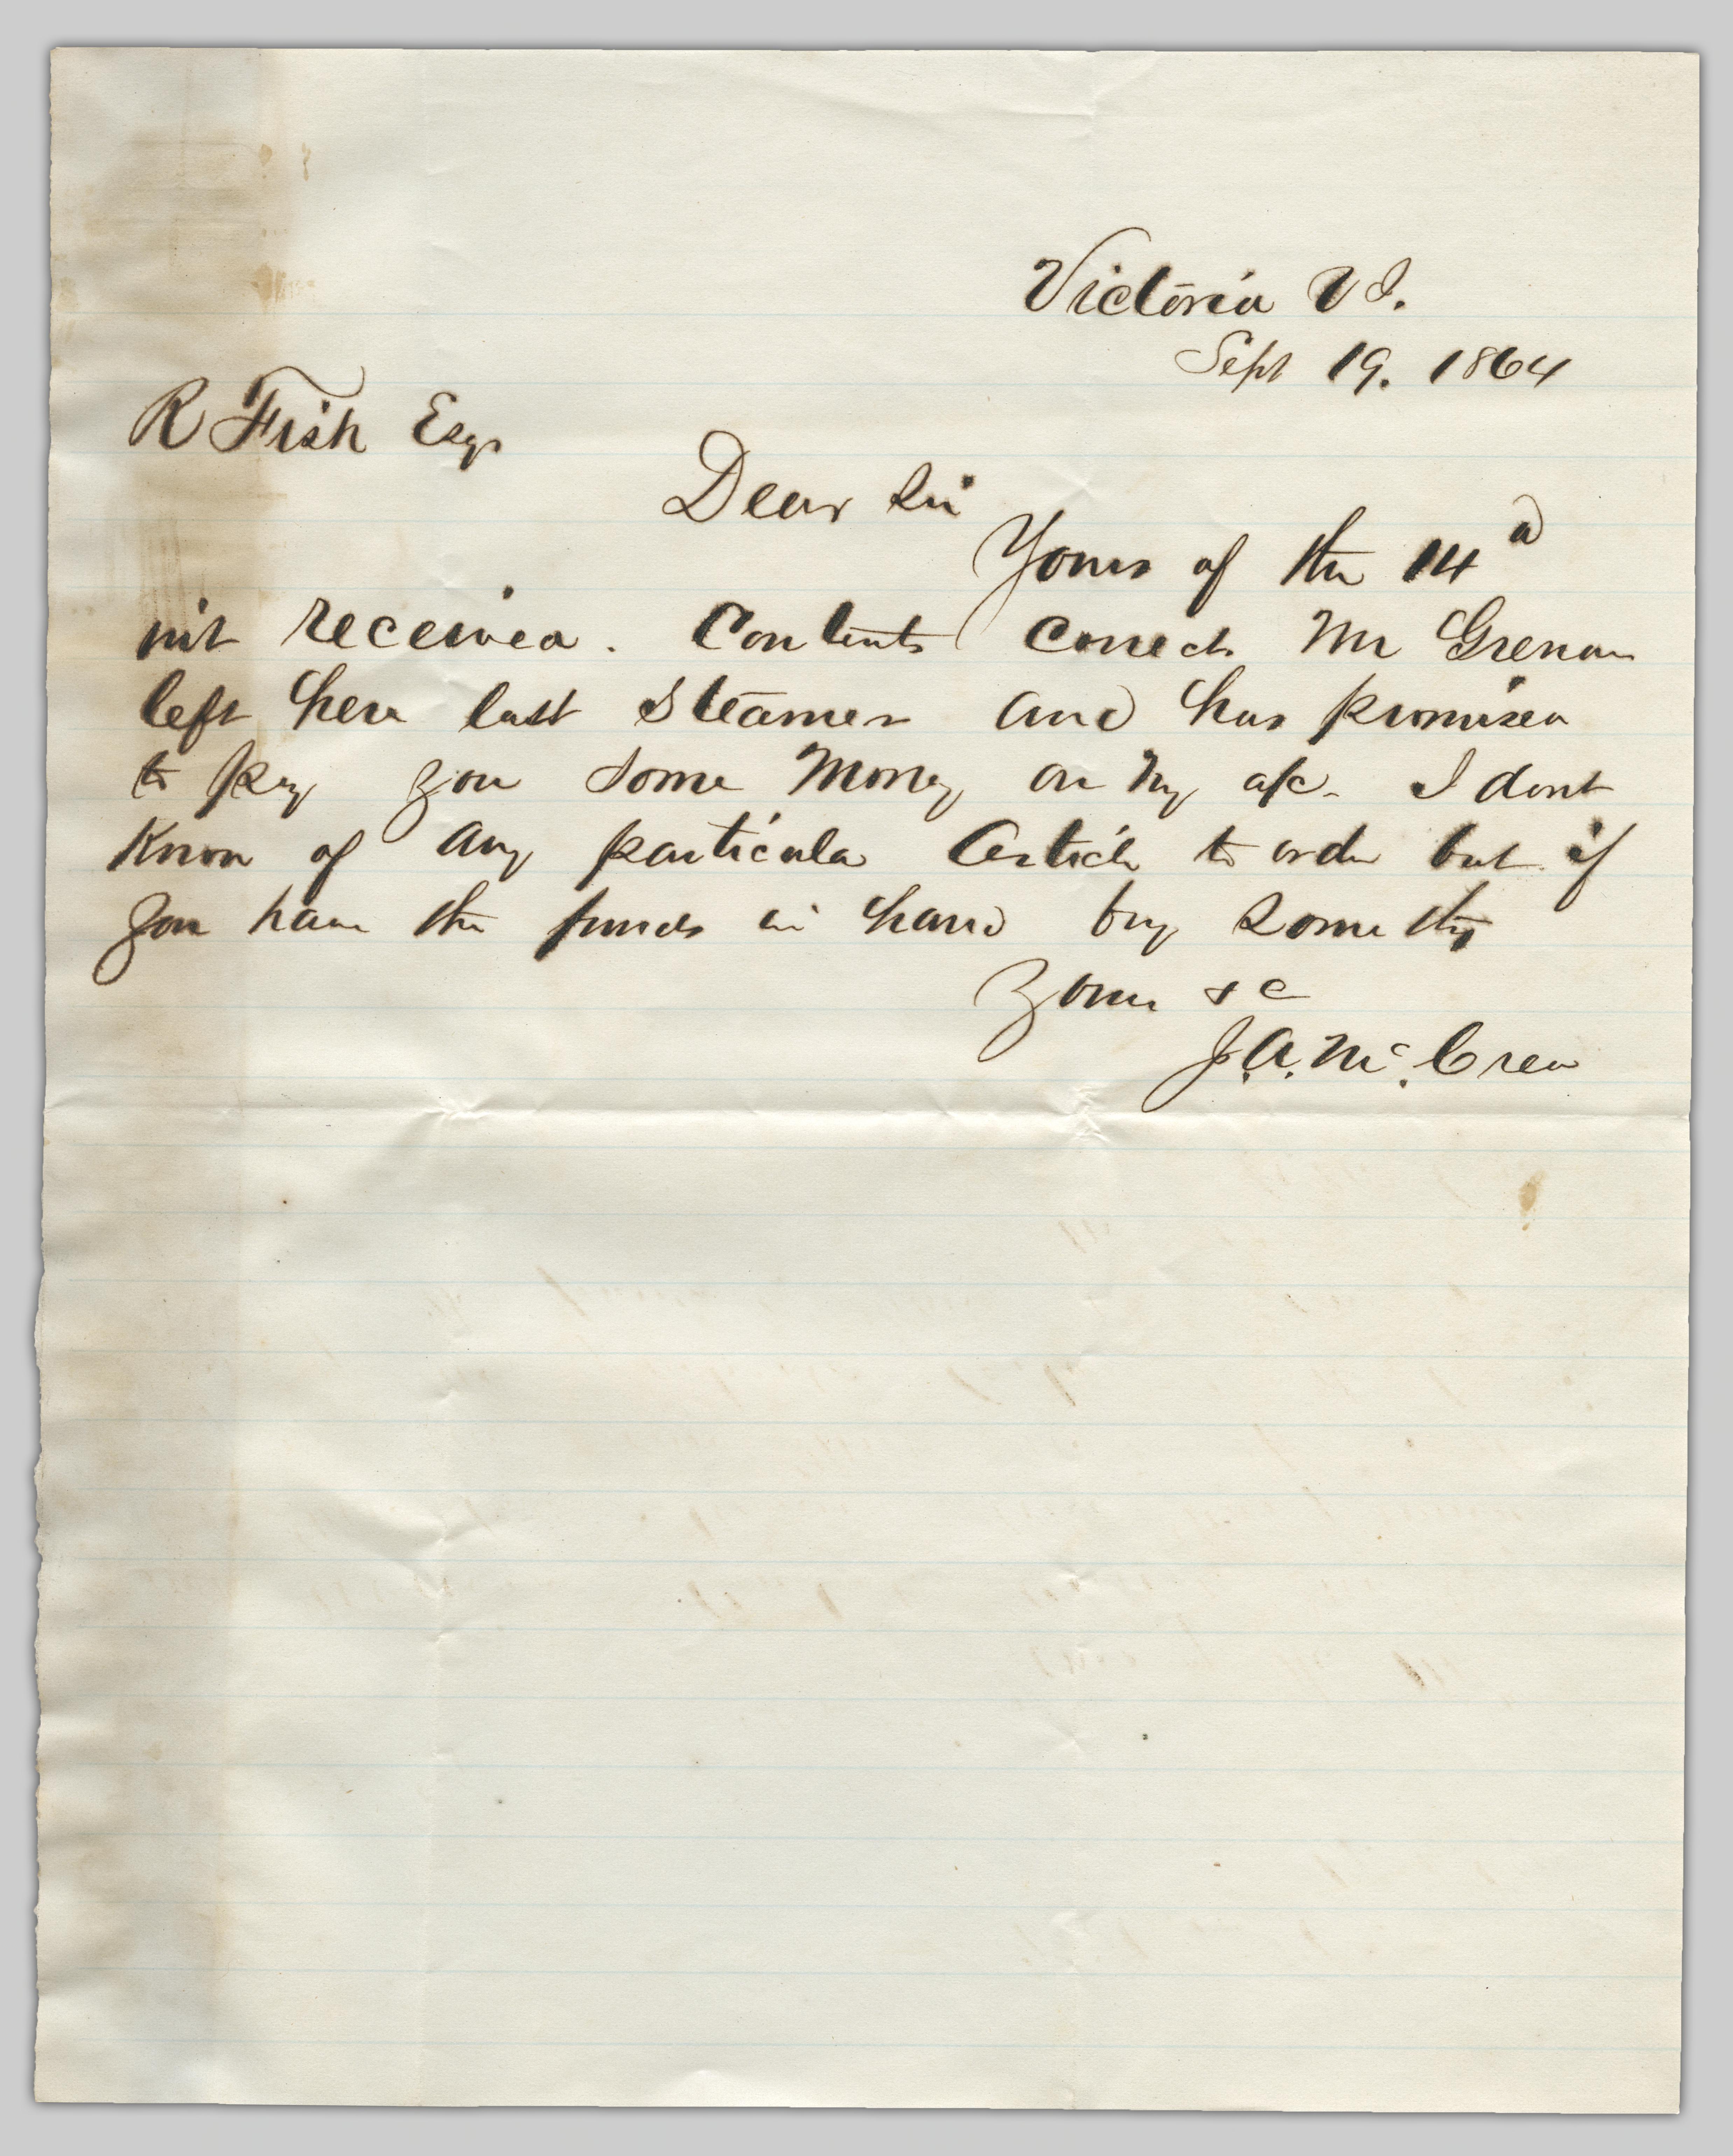 Victoria V I.
Sept 19. 1864
R Fish Esqr
Dear Sir
Yours of the 14
inst received. Contents correct. Mr
left here last Steamer and has promised
to pay you some Money on my a/c. I dont
Know of any particular Article to order but if
you have the funds in hand buy something
Yours &c
J. A. Mc. Crea